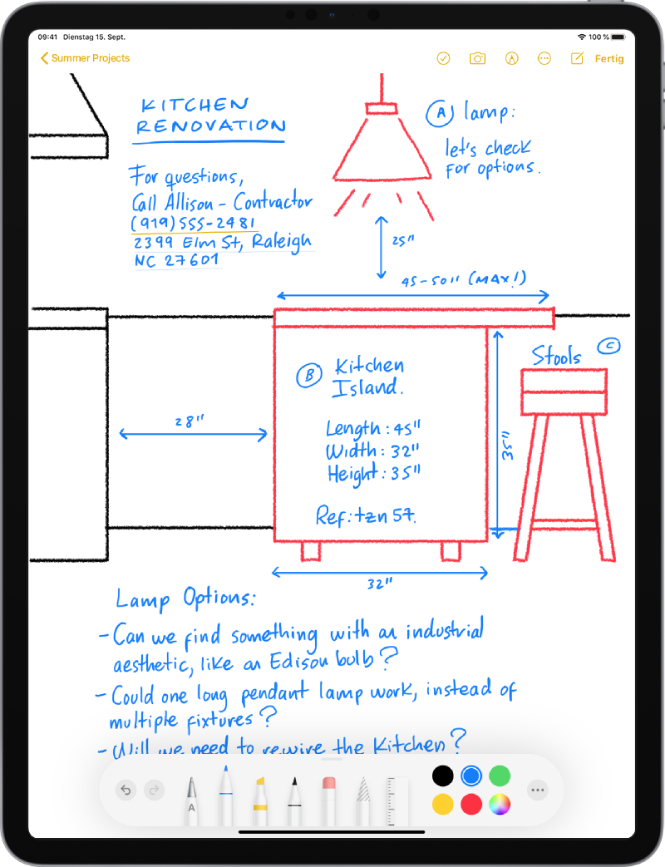 09:41 Dienstag 15. Sept.
100 %
Summer Projects
Fertig
KITCHEN
RENOVATION
For questions,
Call Allison - Contractor
(919)555-2481
2399 Elm St, Raleigh
NC 27601
A lamp:
let's check
for options.
25"
45-50" (MAX!)
B Kitchen
Island.
Length: 45"
Width: 32"
Height: 35"
Ref: tzn 57.
28"
35"
Stools C
32"
Lamp Options:
- Can we find something with an industrial
aesthetic, like an Edison bulb?
- Could one long pendant lamp work, instead of
multiple fixtures?
- Will we need to rewire the kitchen?
A